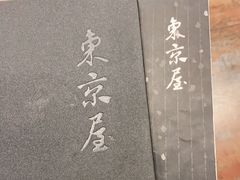 東京屋
東京屋